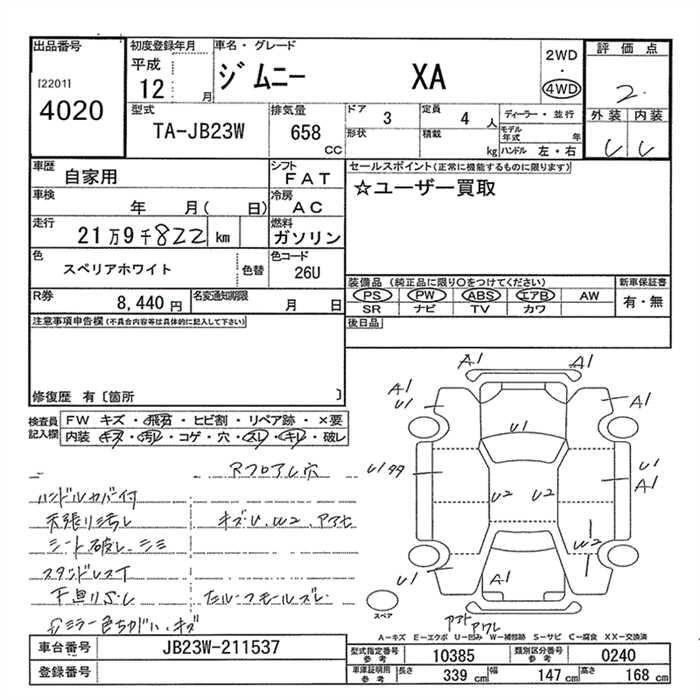 出品番号
[2201]
4020
初度登録年月
平成
12 月
車名・グレード
ジムニー XA
2WD
・
4WD
評価点
2
外装 内装
型式
TA-JB23W
排気量
658 CC
ドア 3
定員 4 人
形状
積載 kg
ディーラー・並行
モデル年式 年
ハンドル 左・右
車歴
自家用
シフト
FAT
車検
年 月( 日)
冷房
AC
走行
21万9千822 km
燃料
ガソリン
色
スペリアホワイト
色替
色コード
26U
R券
8,440 円
名変通知期限
月 日
セールスポイント(正常に機能するものに限ります)
☆ユーザー買取
装備品(純正品に限り○をつけてください)
PS PW ABS エアB AW
SR ナビ TV カワ
新車保証書
有・無
後日品
注意事項申告欄(不具合内容等は具体的に記入して下さい)
修復歴 有〔箇所 〕
検査員記入欄
FW キズ・飛石・ヒビ割・リペア跡・×要
内装・キズ・汚レ・コゲ・穴・スレ・キレ・破レ
ハンドルカバー付
天張り汚れ
キズU、W2、アアヒ
シート破レ、シミ
下廻りサビ
ドアミラー色ちがい、キズ
A1 A1
A1 U1
A1
U1
U1
U1 A1
U2 U2
W2
U1
A1
スペア
A―キズ E―エクボ U―凹み W―補修跡 S―サビ C―腐食 XX―交換済
車台番号
JB23W-211537
登録番号
型式指定番号 参考
10385
類別区分番号 参考
0240
車庫証明用 参考
長さ 339 cm
幅 147 cm
高さ 168 cm